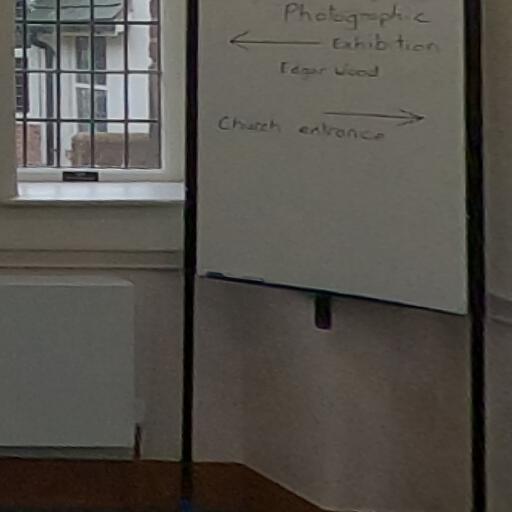 Photographic
← Exhibition
Edgar Wood
→
Church entrance